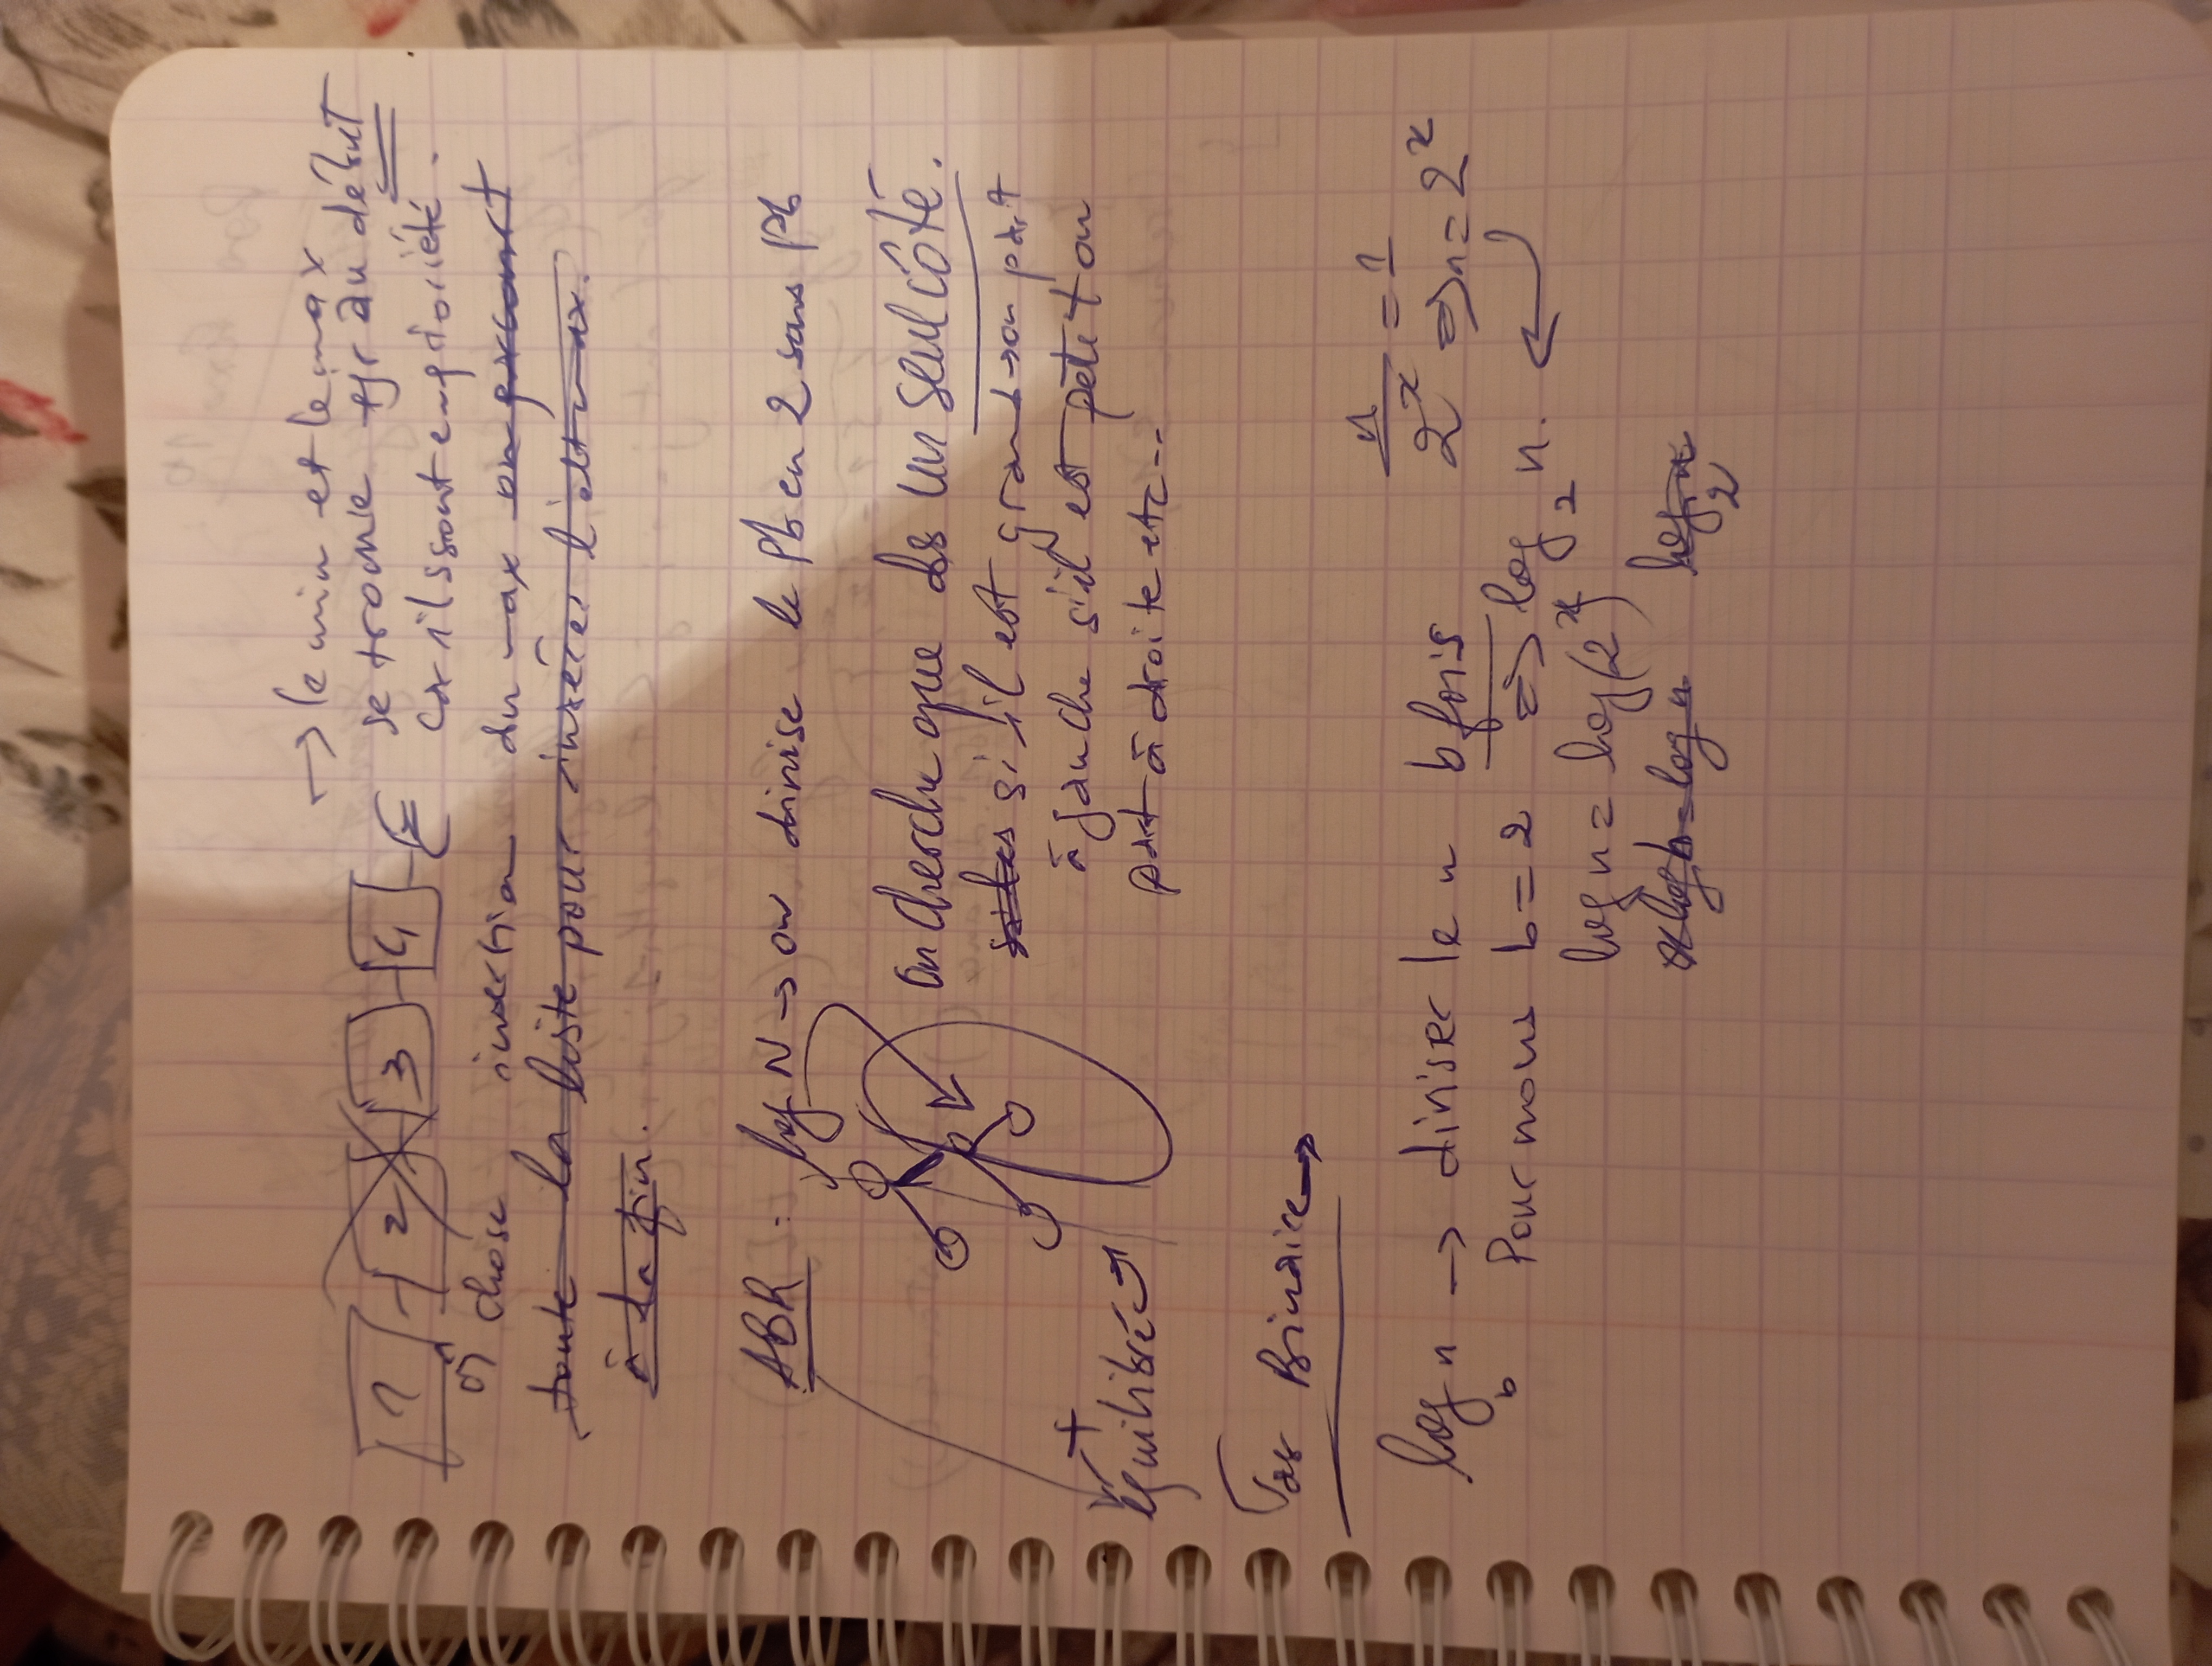 → le min et le max
1 2 3 4 se trouve tjr au début
car ils sont en priorité.
chose insertion du max on parcourt
toute la liste pour insérer l'elt max.
à la fin.
ABR : log N → on divise le Pb en 2 sous Pb
On cherche que ds Un SEUL CÔTÉ.
si il est grand → on part
à gauche s'il est petit on
part à droite etc...
+ équilibré
Cas Binaire →
log_b n → diviser le n b fois n/2^x = 1
⇒ n = 2^x
Pour nous b = 2 ⇒ log_2 n.
log n = log(2^x)
x log b = log n log_2 n